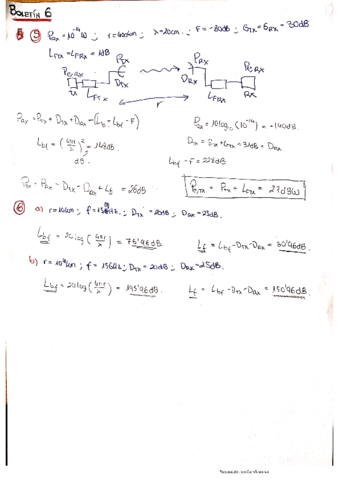 BOLETÍN 6
5 P_RX = 10^-14 W ; r = 400km ; λ = 20cm ; F = -80dB ; G_TX = G_RX = 30dB
L_TTX = L_TRX = 1dB
P_TX P_RX
D_TX D_RX
L_TTX r L_TRX RX
P_RX = P_TX + D_TX + D_RX - (L_b = L_bf - F) P_RX = 10log10 (10^-14) = -140dB
L_bf = (4πr/λ)^2 = 148dB. D_TX = G_TX + L_TTX = 31dB = D_RX
dB. L_bf - F = 228dB
P_TX = P_RX - D_TX - D_RX + L_b = 26dB P_ETX = P_TX + L_TTX = 27dBW
6 a) r = 10km ; f = 15MHz ; D_TX = 20dB ; D_RX = 25dB.
L_bf = 20log (4πr/λ) = 75'96dB L_f = L_bf - D_TX - D_RX = 30'96dB.
b) r = 10^4km ; f = 15GHz ; D_TX = 20dB ; D_RX = 25dB.
L_bf = 20log (4πr/λ) = 195'96dB L_f = L_bf - D_TX - D_RX = 150'96dB.